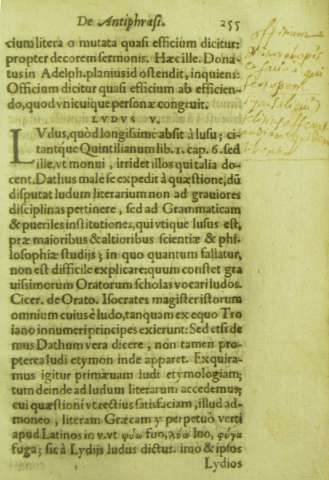 De Antiphrasi. 255
cium litera o mutata quasi efficium dicitur:
propter decorem sermonis. Hæc ille. Dona-
tus in Adelph. planius id ostendit, inquiens:
Officium dicitur quasi efficium ab efficien-
do, quod vnicuique personæ congruit.
LVDVS V.
LVdus, quòd longissimè absit à lusu; ci-
tantque Quintilianum lib. 1. cap. 6. sed
ille, vt monui, irridet illos qui talia do-
cent. Dathus male se expedit à quæstione, dū
disputat ludum literarium non ad grauiores
disciplinas pertinere, sed ad Grammaticam
& pueriles institutiones, qui vtique lusus est,
præ maioribus & altioribus scientiæ & phi-
losophiæ studijs; in quo quantum fallatur,
non est difficile explicare: quum constet gra
uissimorum Oratorum scholas vocari ludos.
Cicer. de Orato. Isocrates magister istorum
omnium cuius è ludo, tanquam ex equo Tro
iano innumeri principes exierunt: Sed etsi de
mus Dathum vera dicere, non tamen pro-
pterea ludi etymon inde apparet. Exquira-
mus igitur primæuam ludi etymologiam;
tum deinde ad ludum literarum accedemus;
cui quæstioni vt rectius satisfaciam, illud ad-
moneo, literam Græcam y perpetuò verti
apud Latinos in v. vt φύω fuo, λύω luo, φύγα
fuga; sic à Lydijs ludus dictus. imò & ipsos
Lydios